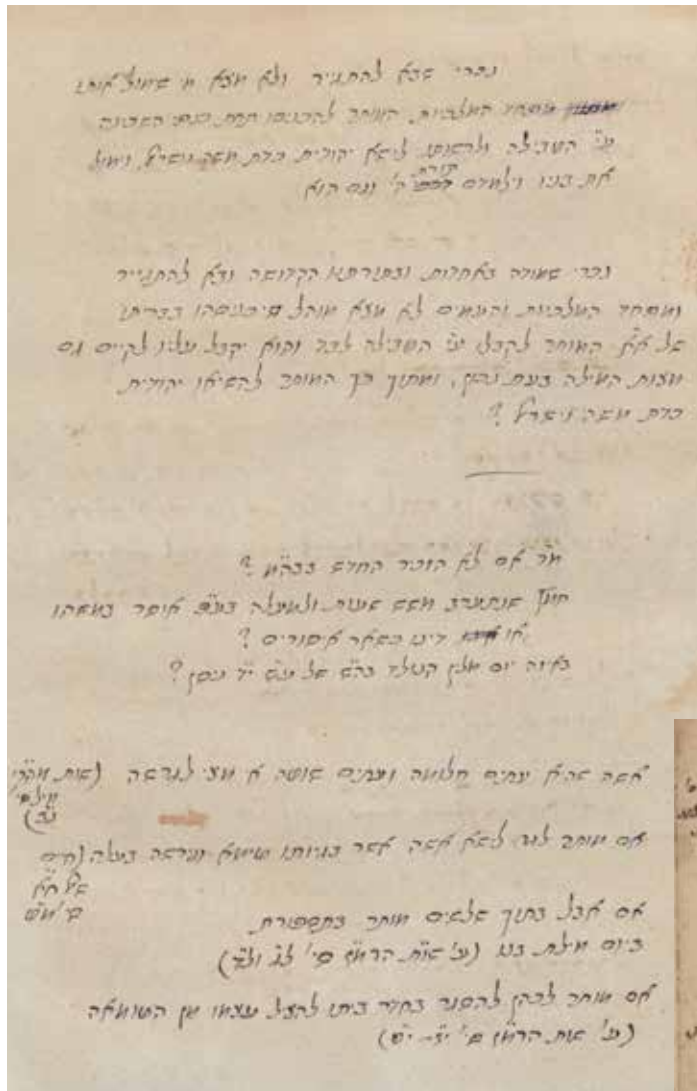 נכרי שבא להתגייר ולא מצא מי שימול אותו
מפחד המלכיות, המותר להכניסו תחת כנפי השכינה
ע״י הטבילה ולהשיאו לישא יהודית כדת משה וישראל, וימול
את בניו וילמדם תורת ד׳ וגם הוא

נכרי שמודה באחדות ובתורתנו הקדושה ובא להתגייר
ומפחד המלכיות והעמים לא מצא מוהל שיכניסהו בבריתו
של א״א המותר לקבלו ע״י הטבילה לבד והוא יקבל עליו לקיים גם
מצות המילה בעת נכון, ומתוך כך המותר להשיאו יהודית
כדת משה וישראל?

מהו אם לא הוכר החדש בבה״מ?
חמץ שנתערב משש שעות ולמעלה בע״פ אוסר במשהו
או דינו כשאר איסורים?
באיזה יום מלין הנולד בה״ש של ע״ש י״ד ניסן?

אשה שהיא עתים חלומה ועתים שוטה א מצי לגרשה (שות
אם מותר לגר לישא אשה אשר בגיותו נישא ונגרשה בעלה (חיים
שאל ח״א
סי׳ מ״ט
אם אבל בתוך שלשים מותר בתספורת
ביום מילת בנו (עי׳ שו״ת הרמ״ז סי׳ ל״ג ול״ד)
אם מותר לכהן להסגר בחדר ביתו להציל עצמו מן הטומאה
(עי׳ שות הרמ״ז סי׳ י״ד-י״ט)